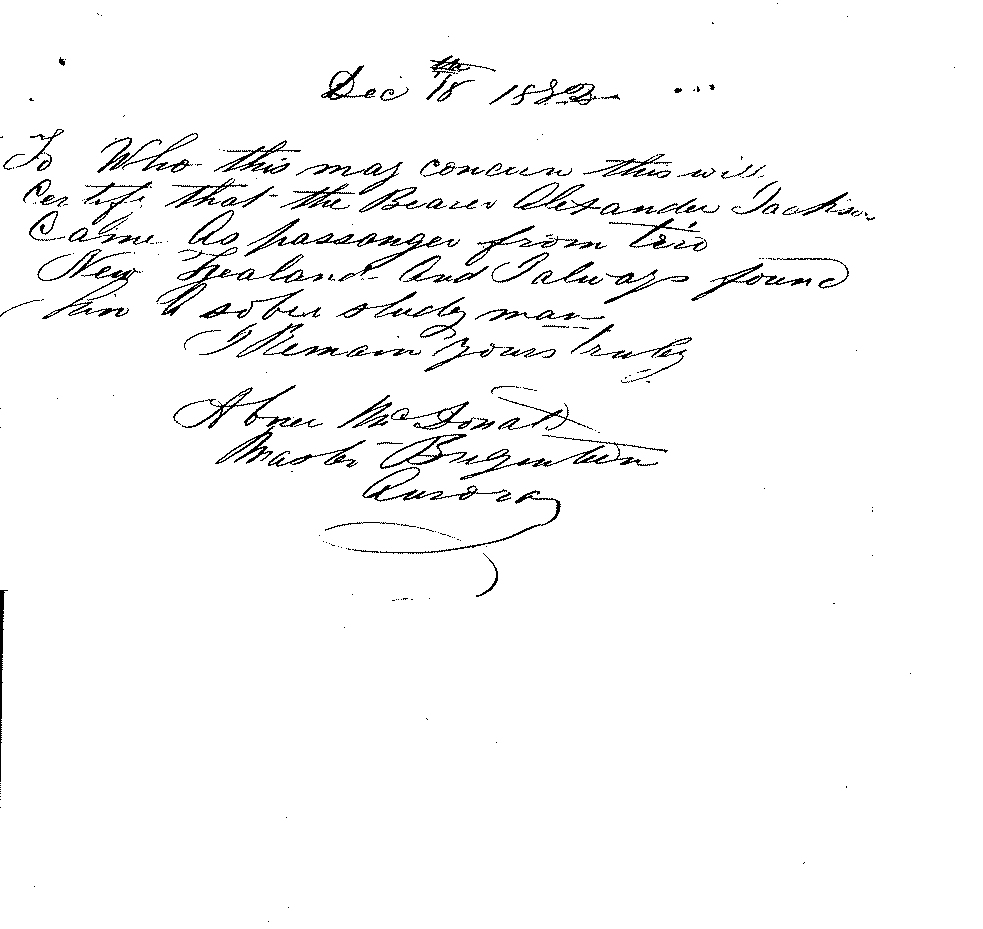 Dec 18th 1882
To Who this may concern this will
Certify that the Bearer Alexander Jackson
Came As passanger from
New Zealand And I always found
him A sober study man
I Remain yours truly
Abner McDonald
Master Brigentien
Aurora